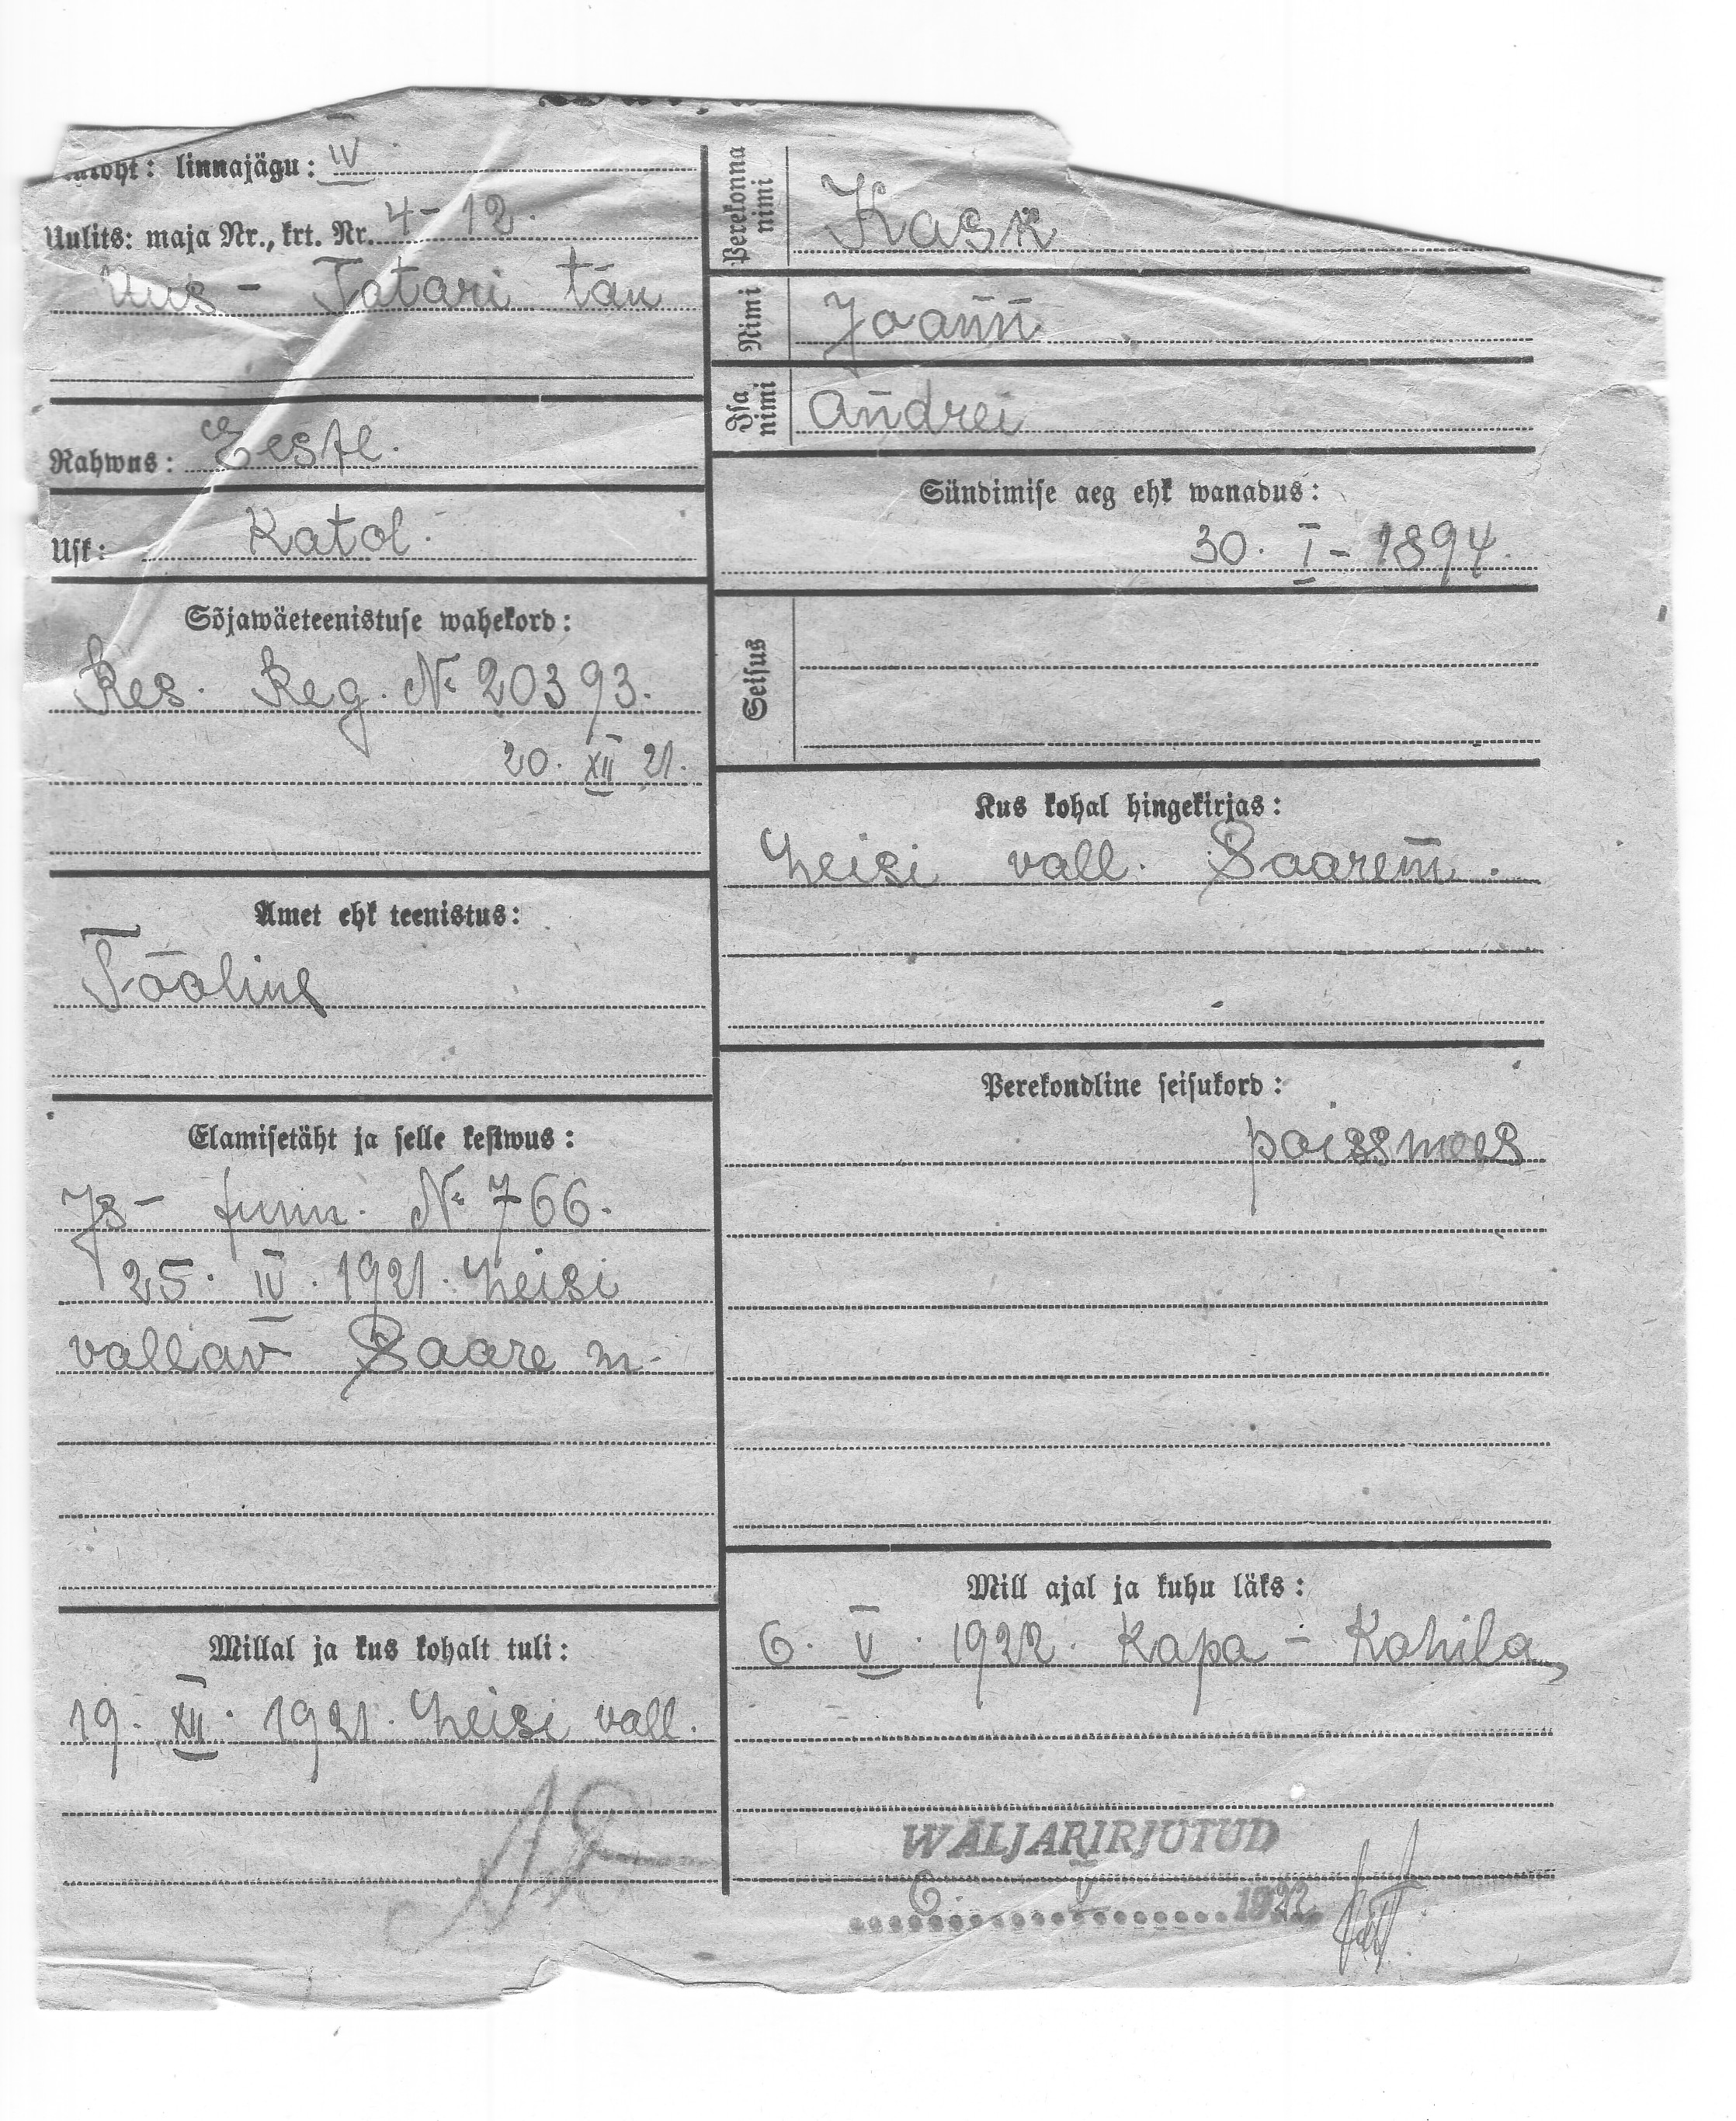 linnajägu: IV
Uulits: maja Nr., krt. Nr. 4-12.
Uus - Tatari tän
Rahwus: Eestl.
Usk: Katol.
Sõjawäeteenistuse wahekord:
Res. Reg. № 20393.
20. XII 21.
Amet ehk teenistus:
Tööline
Elamisetäht ja selle kestwus:
Is- tunn. № 766.
25. IV. 1921. Leisi
vallav Saare m.
Millal ja kus kohalt tuli:
19. XII. 1921. Leisi vall.
Perekonna nimi
Kask
Nimi
Joann
Isa nimi
Andrei
Sündimise aeg ehk wanadus:
30. I - 1894.
Seisus
Kus kohal hingekirjas:
Leisi vall. Saarem.
Perekondline seisukord:
poissmees
Mill ajal ja kuhu läks:
6. V. 1922. Rapa - Kohila
WÄLJAKIRJUTUD
6. V 1922